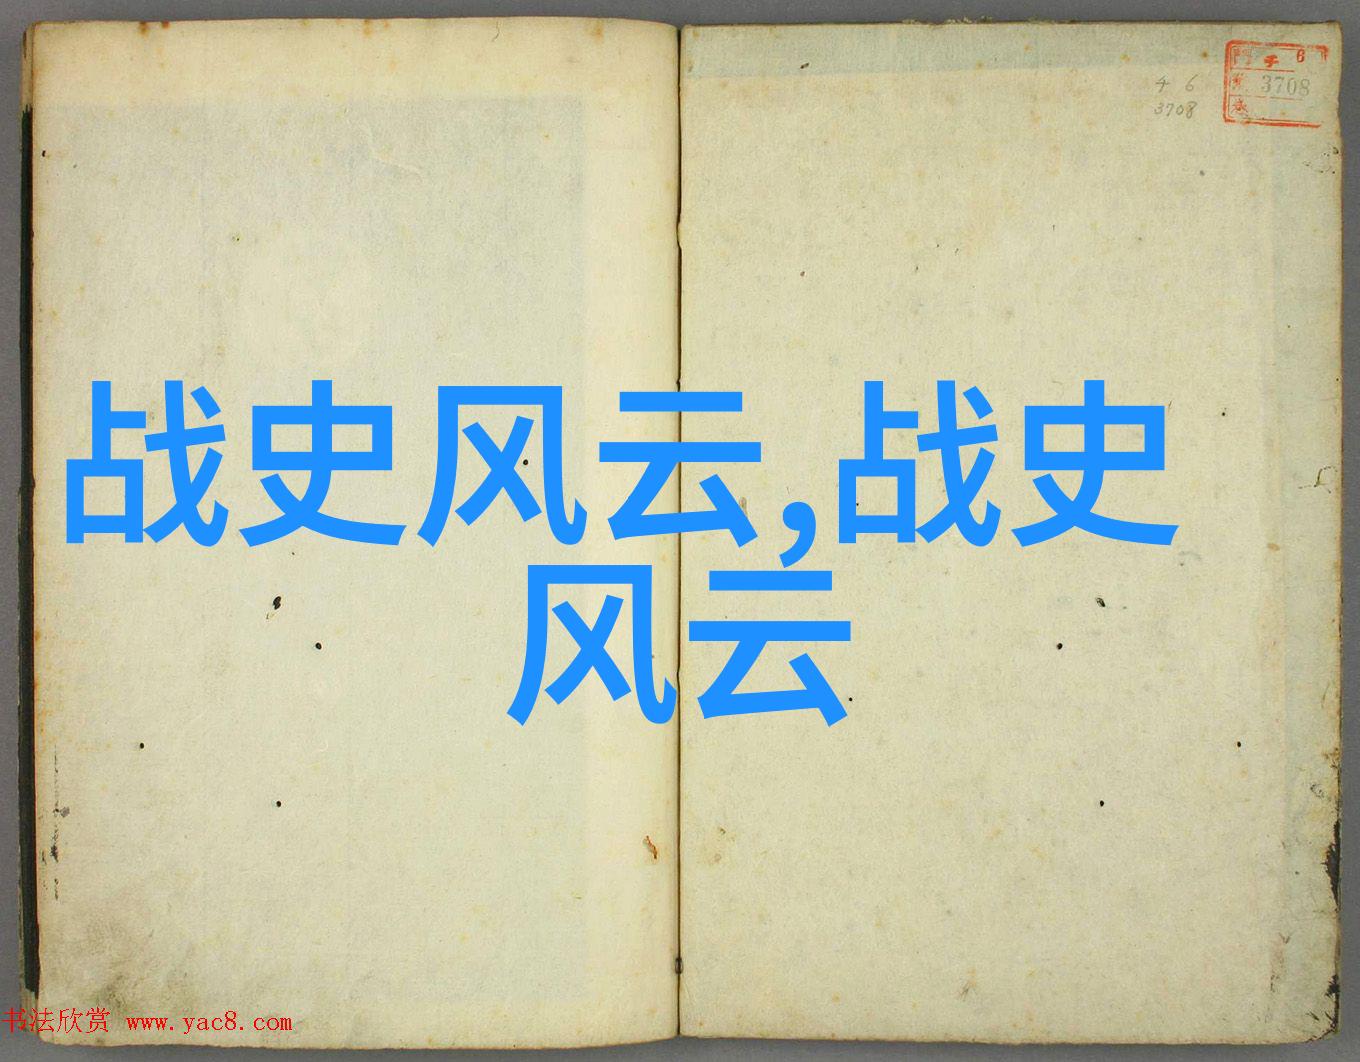 战史风云,战史
风云
6
3708
4 6
3708
书法欣赏 www.yac8.com